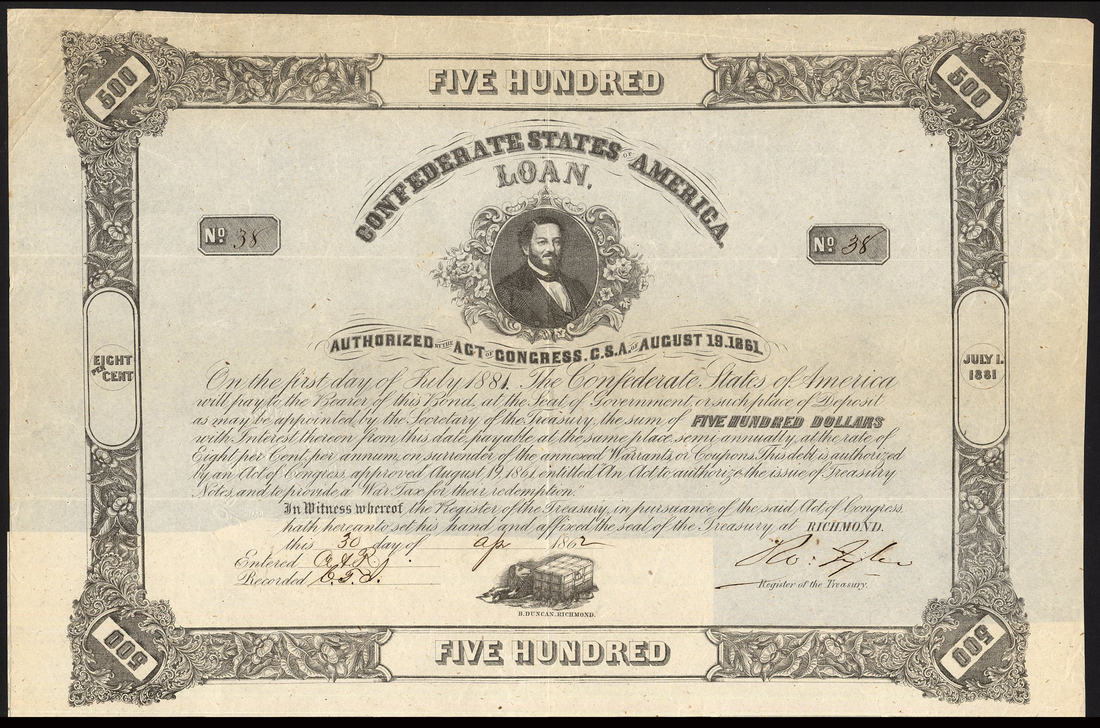 500
FIVE HUNDRED
500
CONFEDERATE STATES OF AMERICA.
LOAN.
No. 38
No. 38
AUTHORIZED BY THE ACT OF CONGRESS. C.S.A. OF AUGUST 19.1861.
EIGHT
PER
CENT
JULY 1.
1881
On the first day of July 1881. The Confederate States of America
will pay to the Bearer of this Bond, at the Seat of Government, or such place of Deposit
as may be appointed by the Secretary of the Treasury, the sum of FIVE HUNDRED DOLLARS
with Interest thereon from this date, payable at the same place, semi annually, at the rate of
Eight per Cent, per annum, on surrender of the annexed Warrants, or Coupons. This debt is authorized
by an Act of Congress, approved August 19, 1861, entitled "An Act, to authorize the issue, of Treasury
Notes, and to provide a War Tax for their redemption."
In Witness whereof, the Register of the Treasury, in pursuance of the said Act of Congress,
hath hereunto set his hand, and affixed the seal of the Treasury, at RICHMOND.
this 30 day of ap 1862
Entered
Recorded
Ro. Tyler
Register of the Treasury.
B. DUNCAN, RICHMOND.
500
FIVE HUNDRED
500